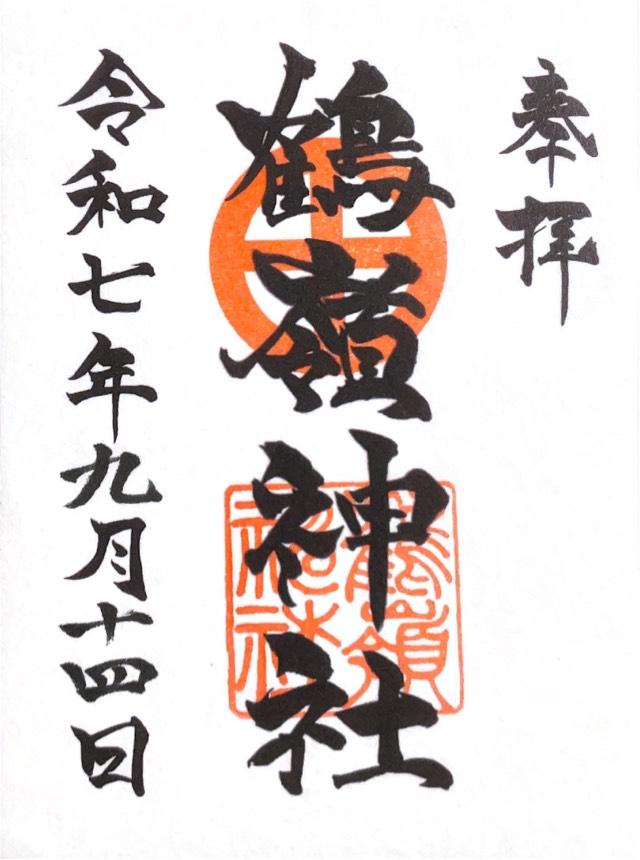 奉拝
鶴嶺神社
令和七年九月十四日
鶴嶺
神社